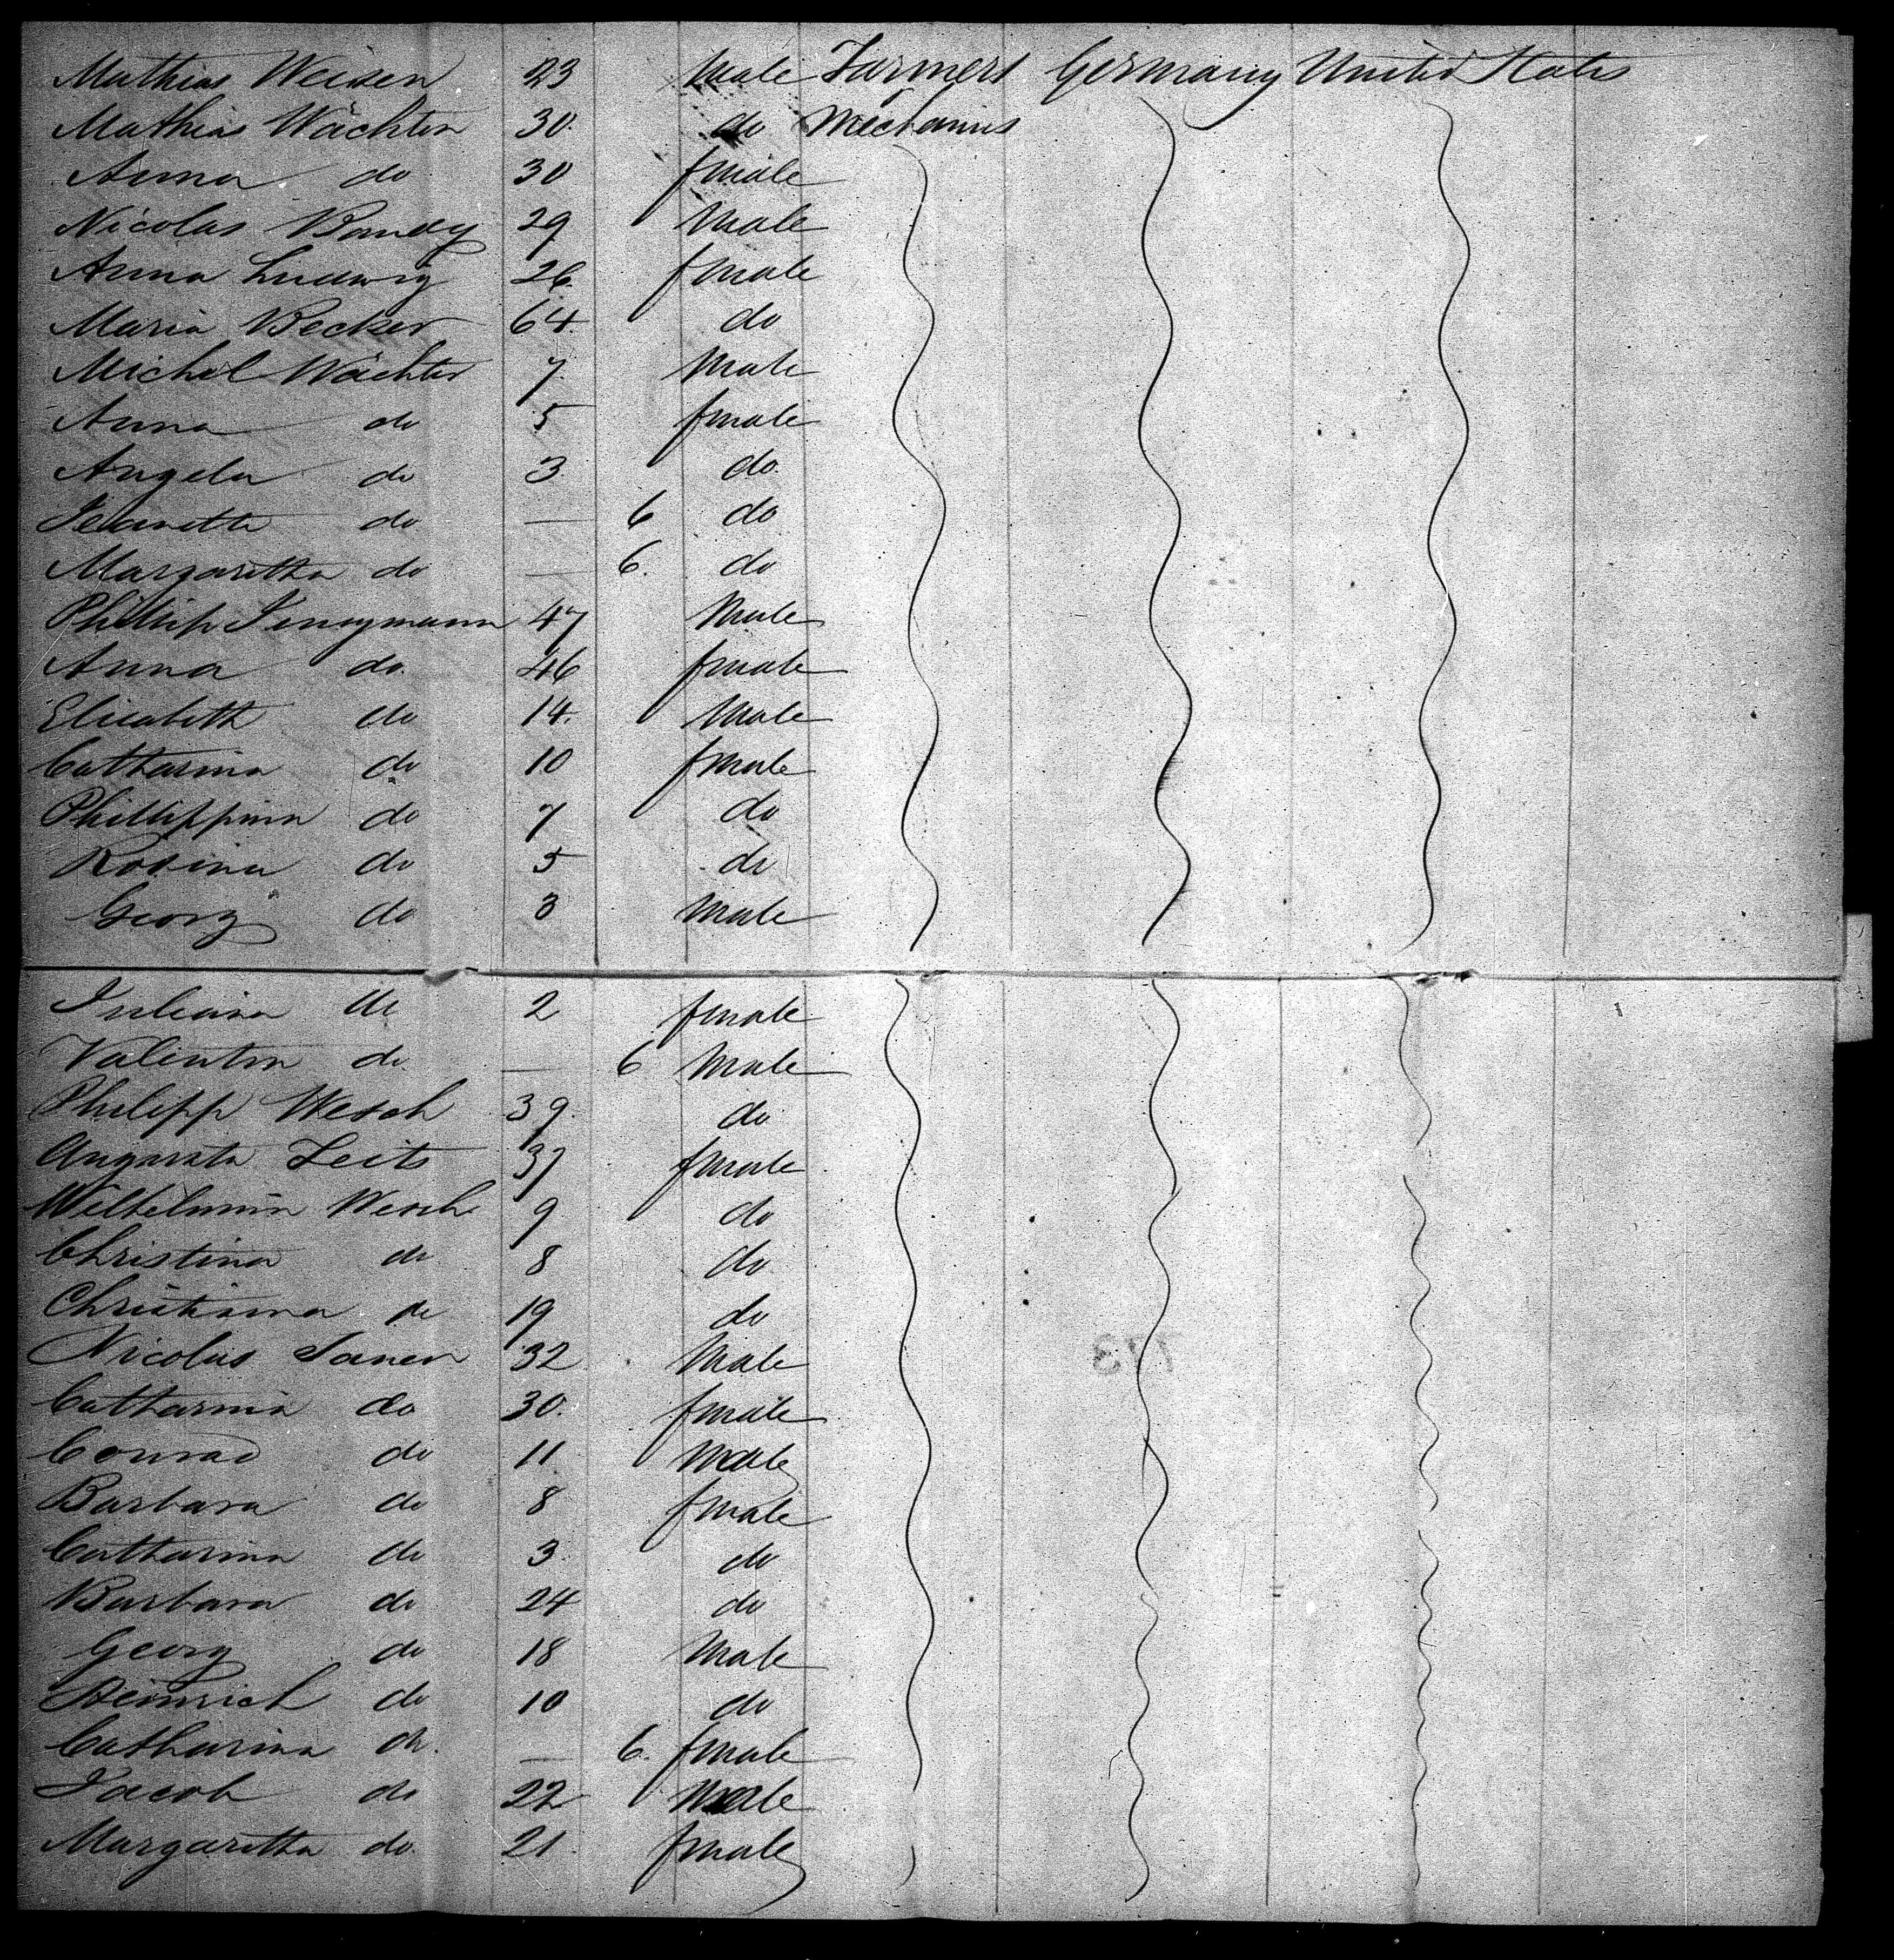 Mathias Weisen 23 Male Farmers Germany United States
Mathias Wächter 30. do Mechanics
Anna do 30 female
Nicolas Bandy 29 Male
Anna Ludwig 26 female
Maria Becker 64 do
Michel Wächter 7. Male
Anna do 5 female
Angela do 3 do.
Jeanette do — 6 do
Margaretha do — 6. do
Phillip Jungmann 47 Male
Anna do. 46 female
Elisabeth do 14. Male
Catharina do 10 female
Phillippina do 7 do
Rosina do 5 do
Georg do 3 Male
Juliana do 2 female
Valentin do. — 6 Male
Philipp Wesch 39. do
Augusta Leits 37 female
Wilhelmin Wesch 9 do
Christina do 8 do
Christiana do 19 do
Nicolas Sauer 32 Male
Catharina do 30. female
Conrad do 11 Male
Barbara do 8 female
Catharina do 3 do
Barbara do 24 do
Georg do 18 Male
Heinrich do 10 do
Catharina do. — 6. female
Jacob do 22 Male
Margaretha do. 21. female